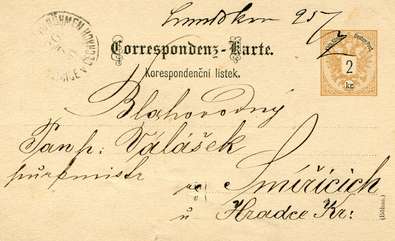 Correspondenz-Karte.
Korespondenční lístek.
2
kr.
Blahorodný
Pan p. Valášek
purkmistr
Smiřicích
u Hradce Kr:
(Böhm.)